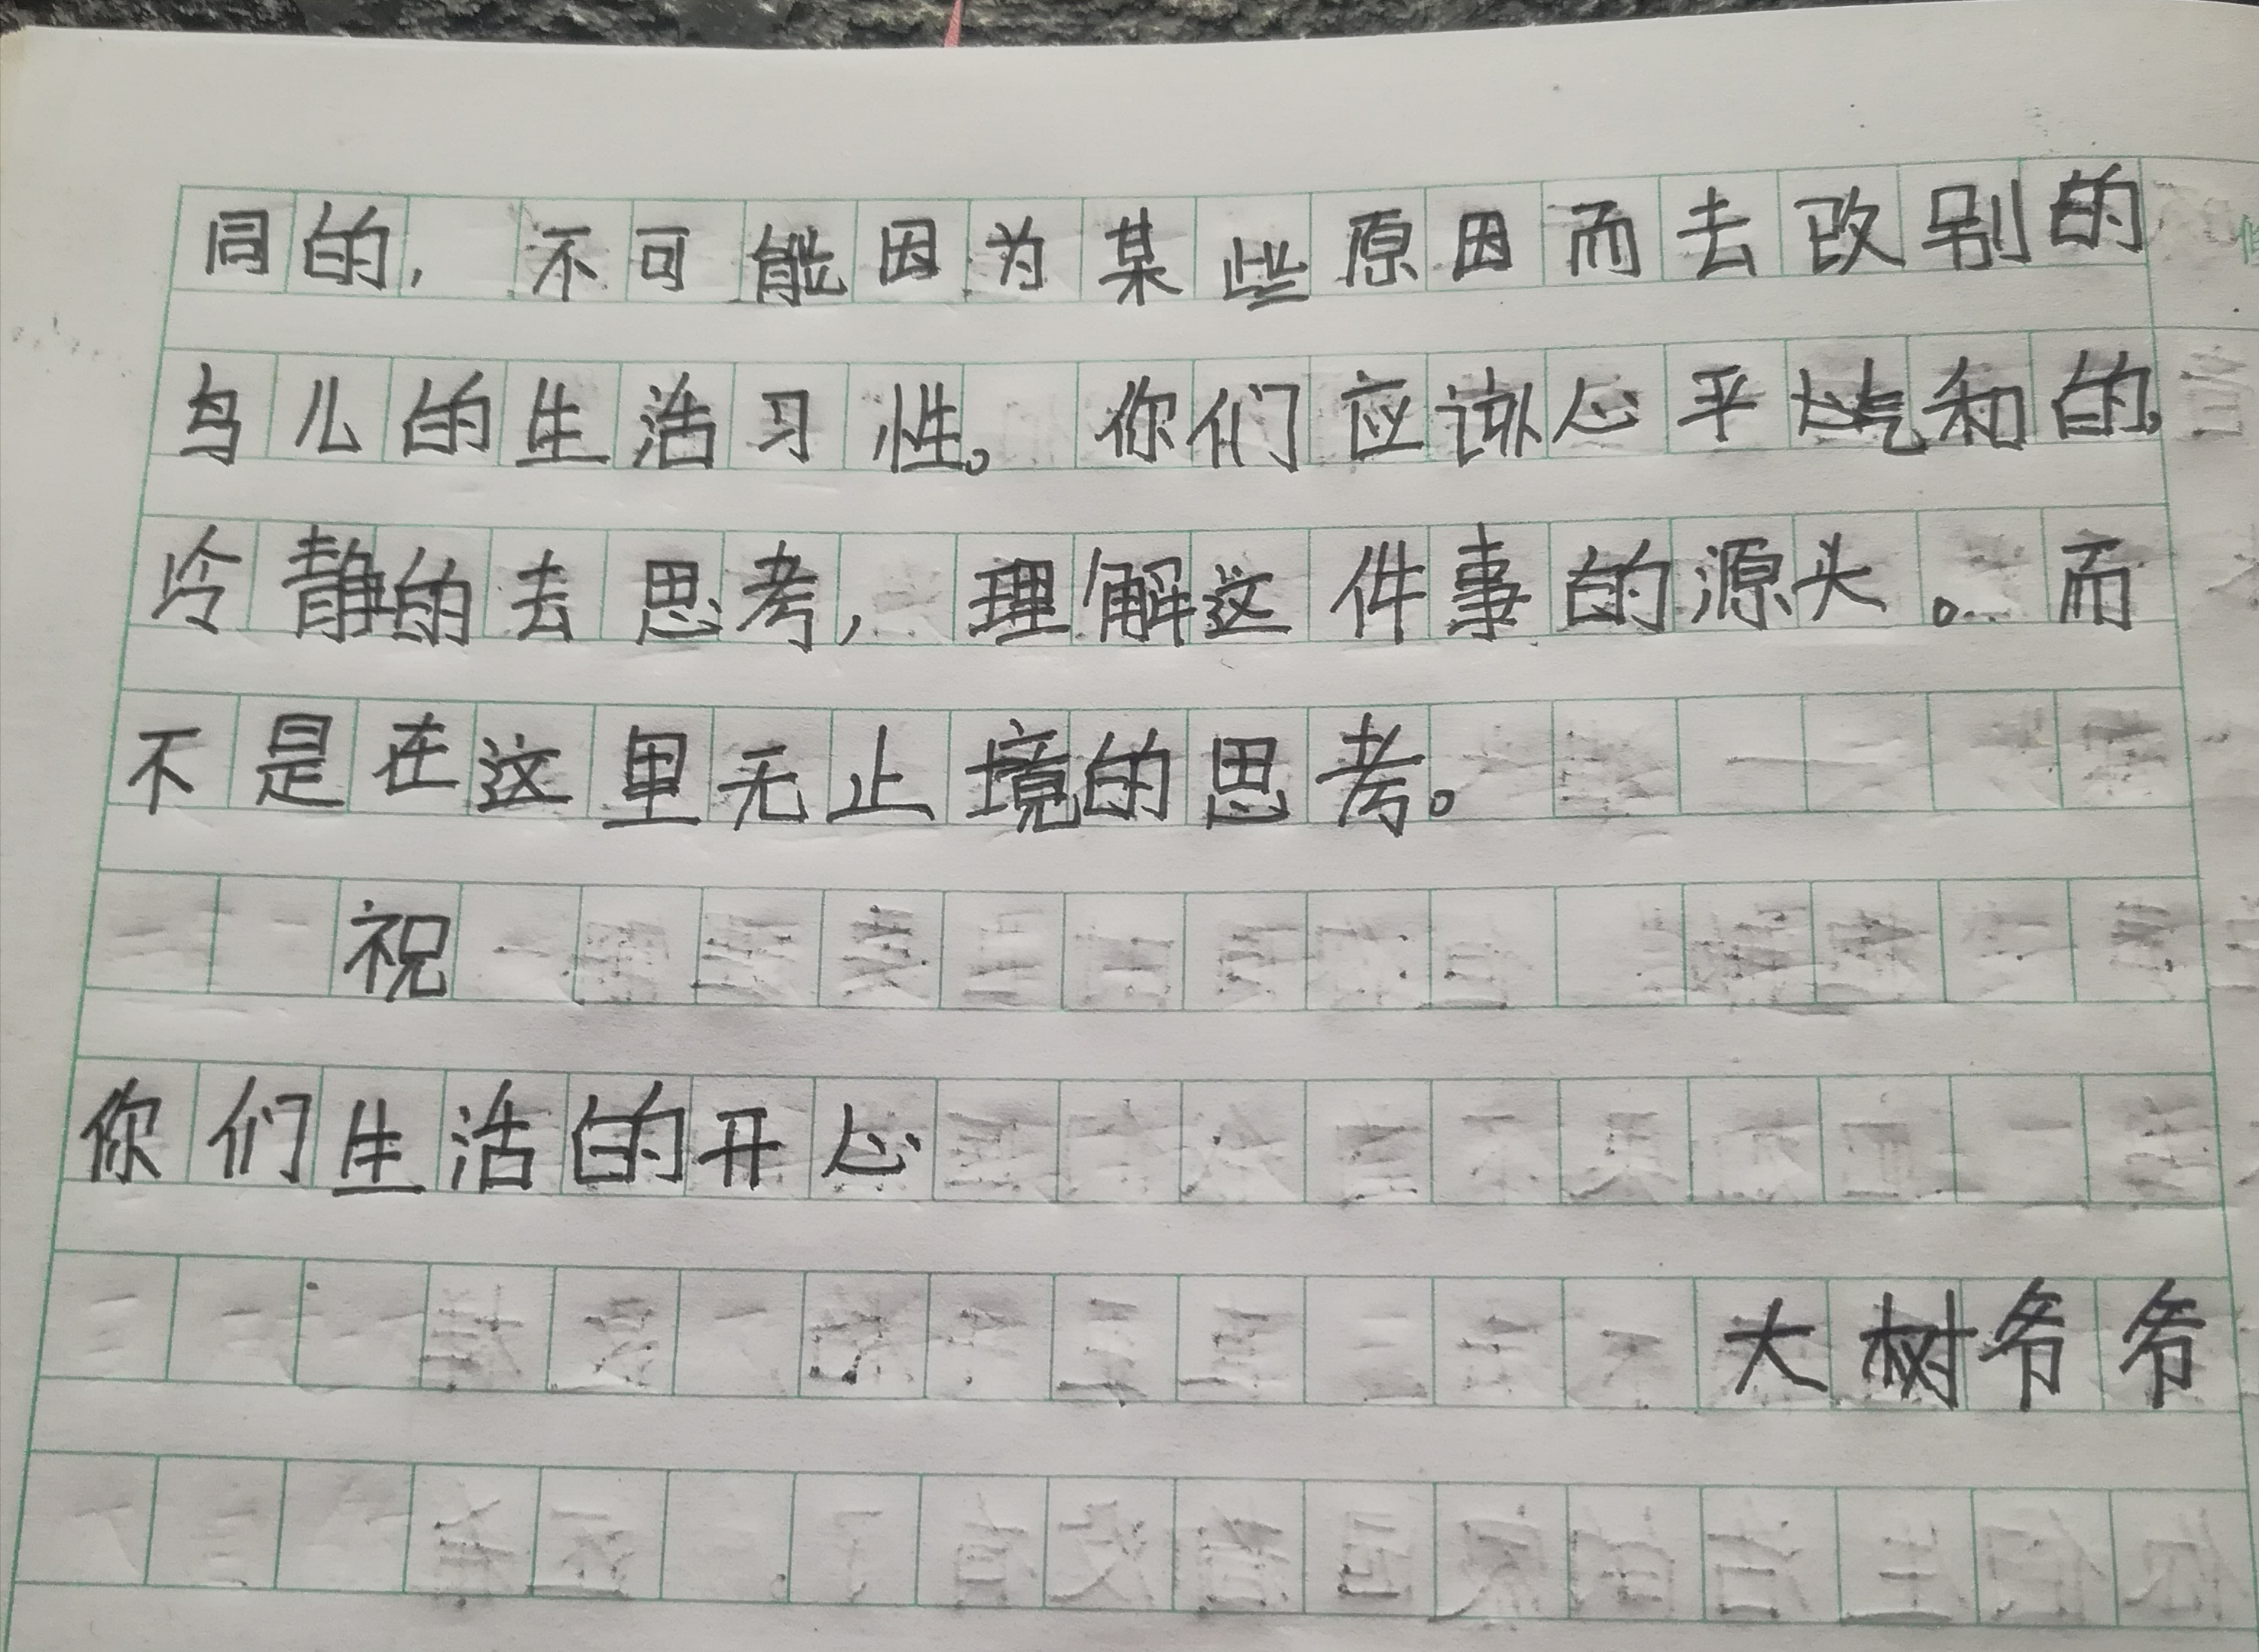 同的，不可能因为某些原因而去改别的
鸟儿的生活习性。你们应该心平气和的，
冷静的去思考，理解这件事的源头。而
不是在这里无止境的思考。
祝
你们生活的开心
大树爷爷